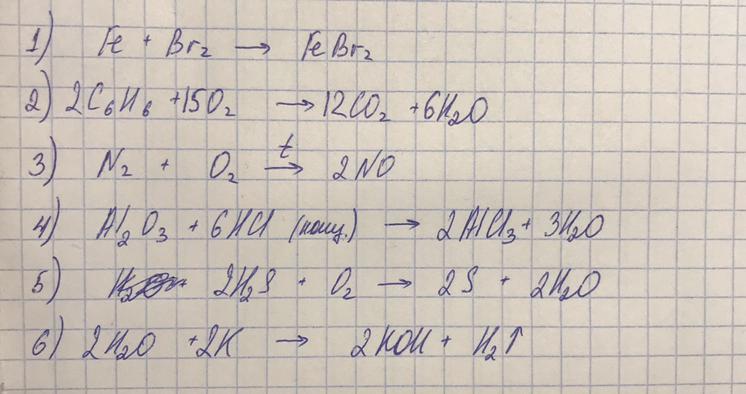 1) Fe + Br₂ → FeBr₂
2) 2C₆H₆ + 15O₂ → 12CO₂ + 6H₂O
3) N₂ + O₂ →ᵗ 2NO
4) Al₂O₃ + 6HCl (конц.) → 2AlCl₃ + 3H₂O
5) 2H₂S + O₂ → 2S + 2H₂O
6) 2H₂O + 2K → 2KOH + H₂↑